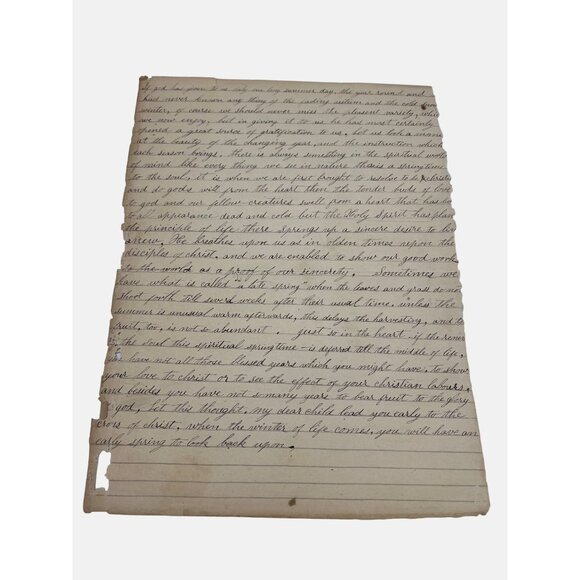 If god has given to us only one long summer day, the year round and
had never known any thing of the fading autum and the cold
winter, of course we should never miss the plesent variety, which
we now enjoy, but in giving it to us he had most certainly
opened a great source of gratification to us. Let us look a
at the beauty of the changing year, and the instruction which
each season brings. there is always something in the spiritual world
of mind like every thing we see in nature theris a springtime
to the soul, it is when we are first brought to resolve to be christ
and do gods will from the heart then the tender buds of love
to god and our fellow-creatures swell from a heart that has be
to all appearance dead and cold but the Holy Spirit has plan
the principle of life There Springs up a sincere desire to li
anew. He breathes upon us as in olden times upon the
disciples of christ. and we are enabled to show our good work
to the world as a proof of our sincerity. Sometimes we
have what is called "a late spring" when the leaves and grass do not
shoot forth till several weeks after their usual time, unless the
summer is unusual warm afterwards, this delays the harvesting, and t
fruit, too, is not so abundant. just so in the heart. if the renew
the soul this spiritual springtime is deferred till the middle of life,
have not all those blessed years which you might have, to show
your love to christ or to see the effect of your christian labours.
and besides you have not so many years to bear fruit to the glory
god, let this thought, my dear child lead you early to the
cross of christ. when the winter of life comes, you will have an
early spring to look back upon.